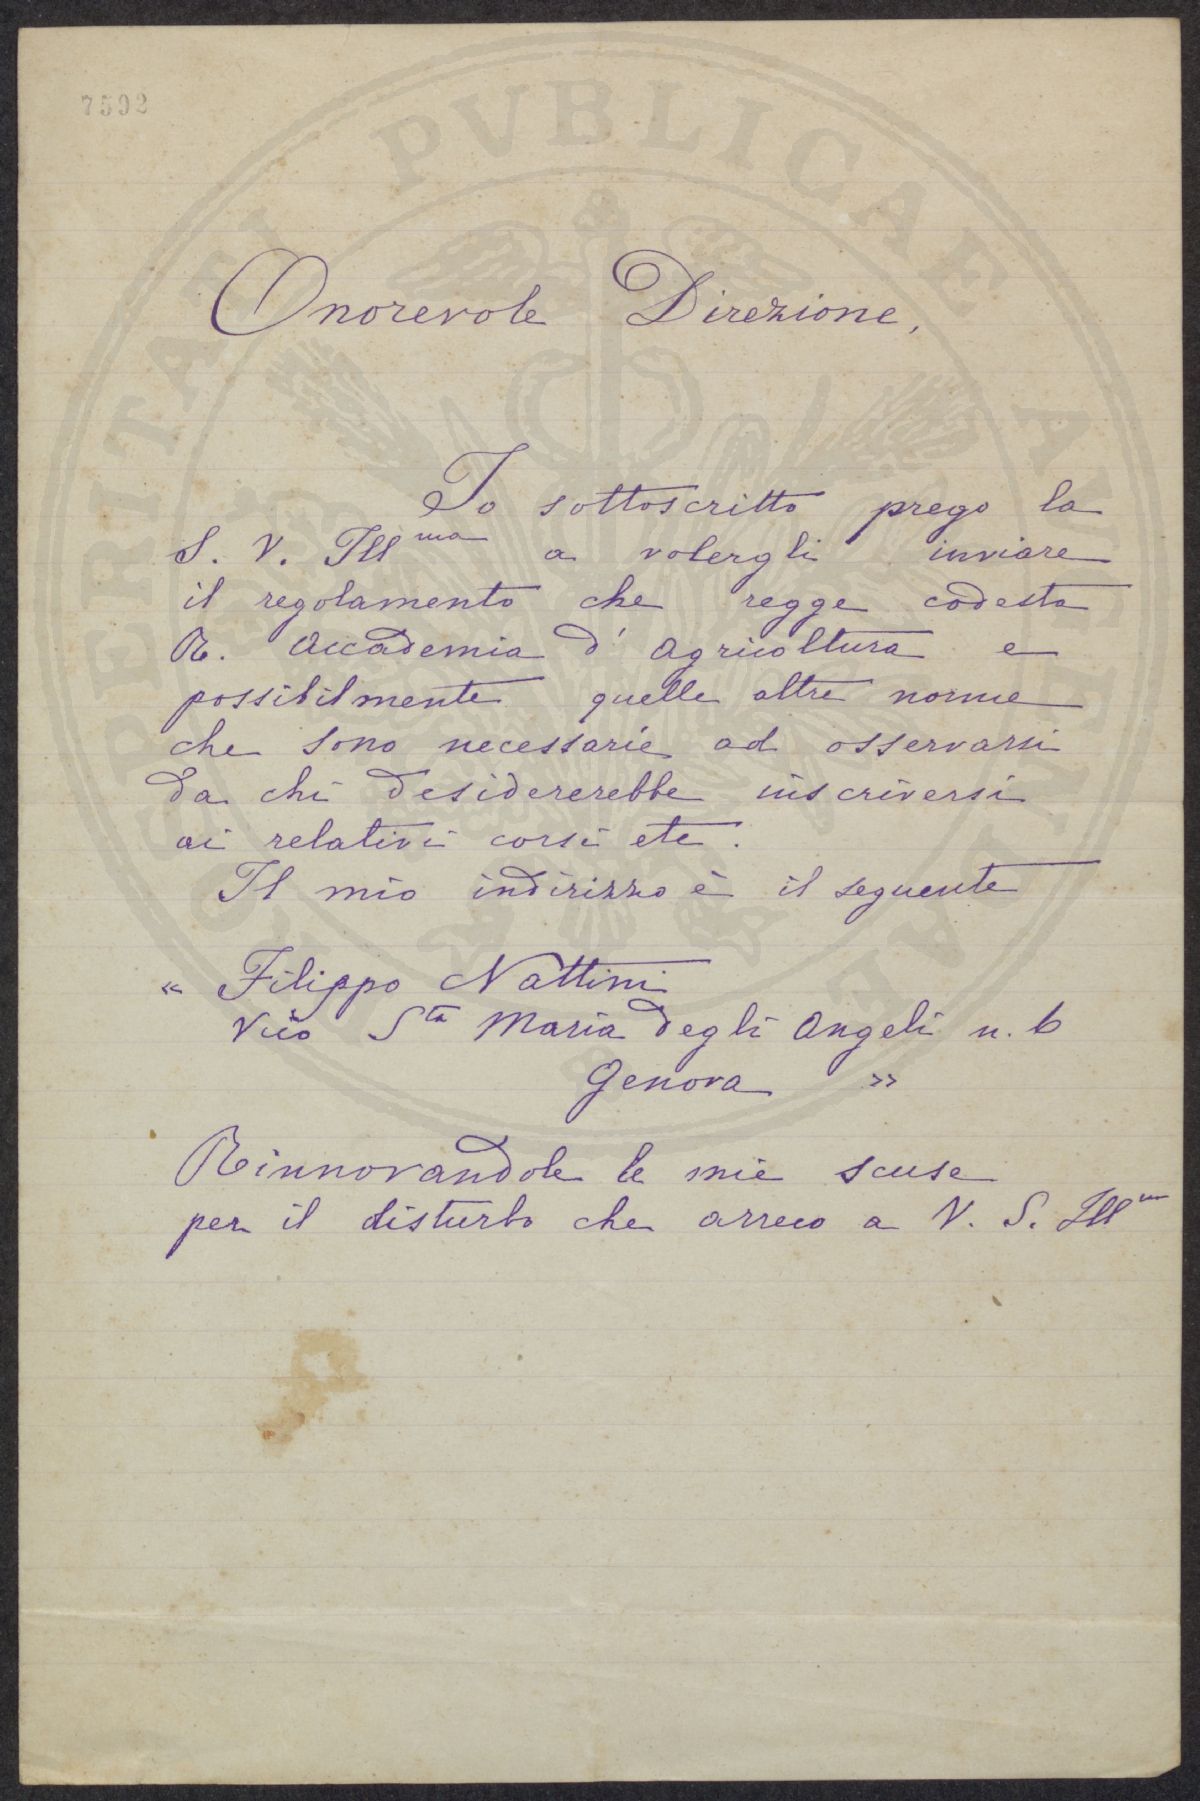 7592
PROSPERITATI PVBLICAE AVGENDAE
Onorevole Direzione,
Io sottoscritto prego la
S. V. Ill^ma a volergli inviare
il regolamento che regge codesta
R. Accademia d'Agricoltura e
possibilmente quelle altre norme
che sono necessarie ad osservarsi
da chi desidererebbe inscriversi
ai relativi corsi etc.
Il mio indirizzo è il seguente
« Filippo Nattini
Vico S^ta Maria degli Angeli n. 6
Genova »
Rinnovandole le mie scuse
per il disturbo che arreco a V. S. Ill^ma